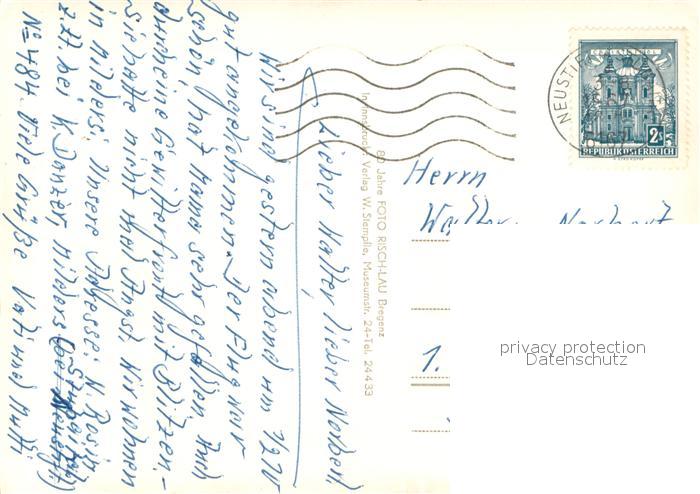 Lieber Walter, lieber Norbert
Wir sind gestern abend um 1/2
gut angekommen. Der Flug war
schön, hat Mama sehr gefallen. Auch
durch eine Gewitterfront mit Blitzen –
sie hatte nicht mal Angst. Wir wohnen
in Milders. Unsere Adresse: N. Rosin
z.Zt. bei K. Danzer Milders
Stubaital
No 484. Viele Grüße Vati und Mutti
80 Jahre FOTO RISCH-LAU Bregenz
Verlag W. Stempfle, Museumstr. 24-Tel. 24433
NEUSTIFT
2S
REPUBLIK ÖSTERREICH
Herrn
Walter Norbert
1.
privacy protection
Datenschutz